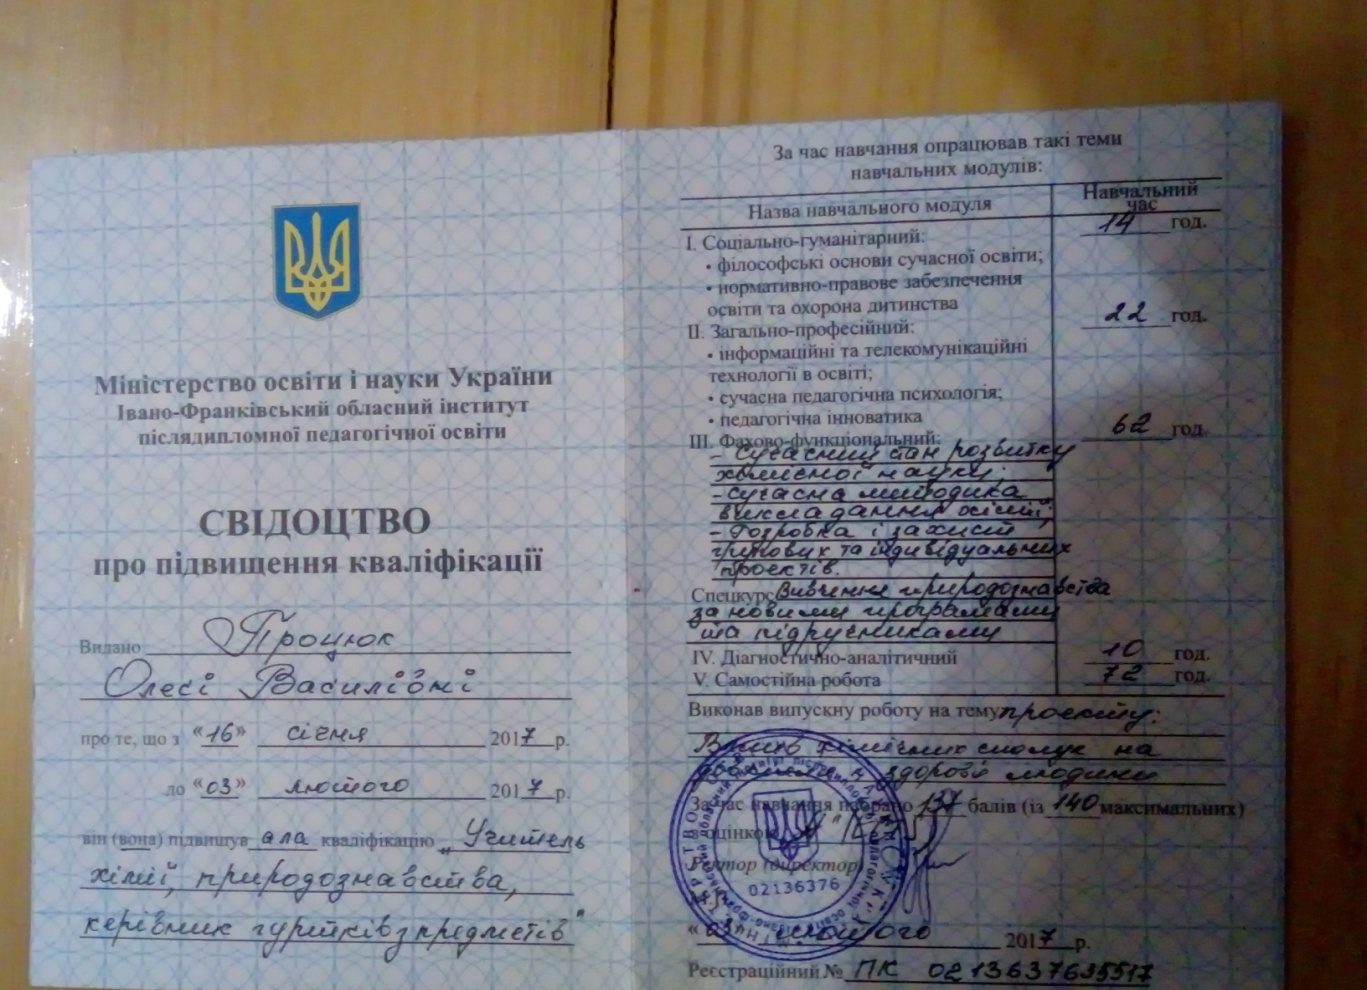 Міністерство освіти і науки України
Івано-Франківський обласний інститут
післядипломної педагогічної освіти
СВІДОЦТВО
про підвищення кваліфікації
Видано Процюк
Олесі Василівні
про те, що з "16" січня 2017 р.
до "03" лютого 2017 р.
він (вона) підвищув ала кваліфікацію „Учитель
хімії, природознавства,
керівник гуртків з предметів"
За час навчання опрацював такі теми
навчальних модулів:
Назва навчального модуля Навчальний час
І. Соціально-гуманітарний: 14 год.
• філософські основи сучасної освіти;
• нормативно-правове забезпечення
освіти та охорона дитинства
ІІ. Загально-професійний: 22 год.
• інформаційні та телекомунікаційні
технології в освіті;
• сучасна педагогічна психологія;
• педагогічна інноватика
ІІІ. Фахово-функціональний: 62 год.
- Сучасний стан розвитку
хімічної науки;
- сучасна методика
викладання хімії;
- розробка і захист
групових та індивідуальних
проектів.
Спецкурс Вивчення природознавства
за новими програмами
та підручниками
IV. Діагностично-аналітичний 10 год.
V. Самостійна робота 72 год.
Виконав випускну роботу на тему проекту:
Вплив хімічних сполук на
здоров'я людини
За час навчання набрано 137 балів (із 140 максимальних)
з оцінкою
Ректор (директор)
02136376
"03" лютого 2017 р.
Реєстраційний № ПК 0213637635517